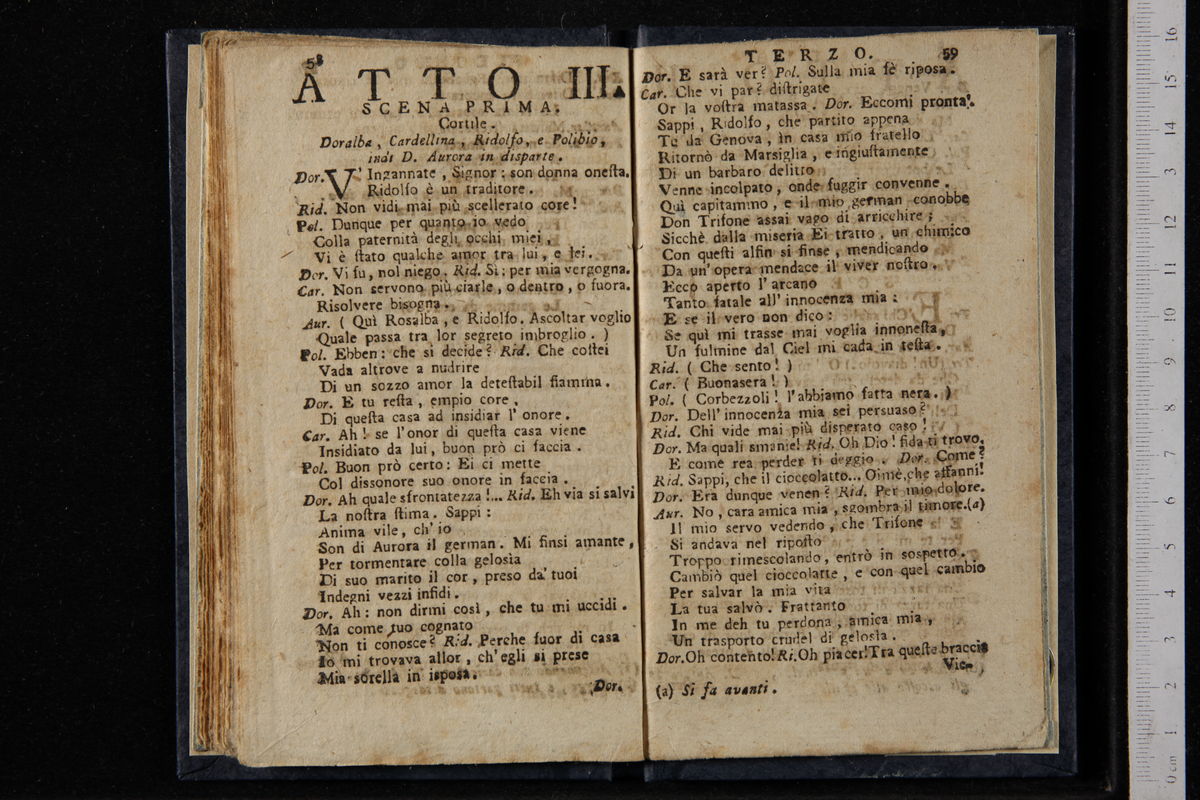 58
ATTO III.
SCENA PRIMA.
Cortile.
Doralba, Cardellina, Ridolfo, e Polibio,
indi D. Aurora in disparte.
Dor. V' Ingannate, Signor: son donna onesta.
Ridolfo è un traditore.
Rid. Non vidi mai più scellerato core!
Pol. Dunque per quanto io vedo
Colla paternità degli occhi miei,
Vi è stato qualche amor tra lui, e lei.
Dor. Vi fu, nol niego. Rid. Sì; per mia vergogna.
Car. Non servono più ciarle, o dentro, o fuora.
Risolvere bisogna.
Aur. ( Quì Rosalba, e Ridolfo. Ascoltar voglio
Quale passa tra lor segreto imbroglio. )
Pol. Ebben: che si decide? Rid. Che costei
Vada altrove a nudrire
Di un sozzo amor la detestabil fiamma.
Dor. E tu resta, empio core,
Di questa casa ad insidiar l' onore.
Car. Ah! se l'onor di questa casa viene
Insidiato da lui, buon prò ci faccia.
Pol. Buon prò certo: Ei ci mette
Col dissonore suo onore in faccia.
Dor. Ah quale sfrontatezza!... Rid. Eh via si salvi
La nostra stima. Sappi:
Anima vile, ch' io
Son di Aurora il german. Mi finsi amante,
Per tormentare colla gelosia
Di suo marito il cor, preso da' tuoi
Indegni vezzi infidi.
Dor. Ah: non dirmi così, che tu mi uccidi.
Ma come tuo cognato
Non ti conosce? Rid. Perche fuor di casa
Io mi trovava allor, ch'egli si prese
Mia sorella in isposa.
Dor.
TERZO. 59
Dor. E sarà ver? Pol. Sulla mia fè riposa.
Car. Che vi par? distrigate
Or la vostra matassa. Dor. Eccomi pronta.
Sappi, Ridolfo, che partito appena
Te da Genova, in casa mio fratello
Ritornò da Marsiglia, e ingiustamente
Di un barbaro delitto
Venne incolpato, onde fuggir convenne.
Quì capitammo, e il mio german conobbe
Don Trifone assai vago di arricchire;
Sicchè dalla miseria Ei tratto, un chimico
Con questi alfin si finse, mendicando
Da un' opera mendace il viver nostro.
Ecco aperto l' arcano
Tanto fatale all' innocenza mia:
E se il vero non dico:
Se quì mi trasse mai voglia innonesta,
Un fulmine dal Ciel mi cada in testa.
Rid. ( Che sento! )
Car. ( Buonasera! )
Pol. ( Corbezzoli! l'abbiamo fatta nera. )
Dor. Dell' innocenza mia sei persuaso?
Rid. Chi vide mai più disperato caso!
Dor. Ma quali smanie! Rid. Oh Dio! fida ti trovo,
E come rea perder ti deggio. Dor. Come?
Rid. Sappi, che il cioccolatto... Oimè, che affanni!
Dor. Era dunque venen? Rid. Per mio dolore.
Aur. No, cara amica mia, sgombra il timore.(a)
Il mio servo vedendo, che Trifone
Si andava nel riposto
Troppo rimescolando, entrò in sospetto.
Cambiò quel cioccolatte, e con quel cambio
Per salvar la mia vita
La tua salvò. Frattanto
In me deh tu perdona, amica mia,
Un trasporto crudel di gelosia.
Dor. Oh contento! Ri. Oh piacer! Tra queste braccia
Vie-
(a) Si fa avanti.